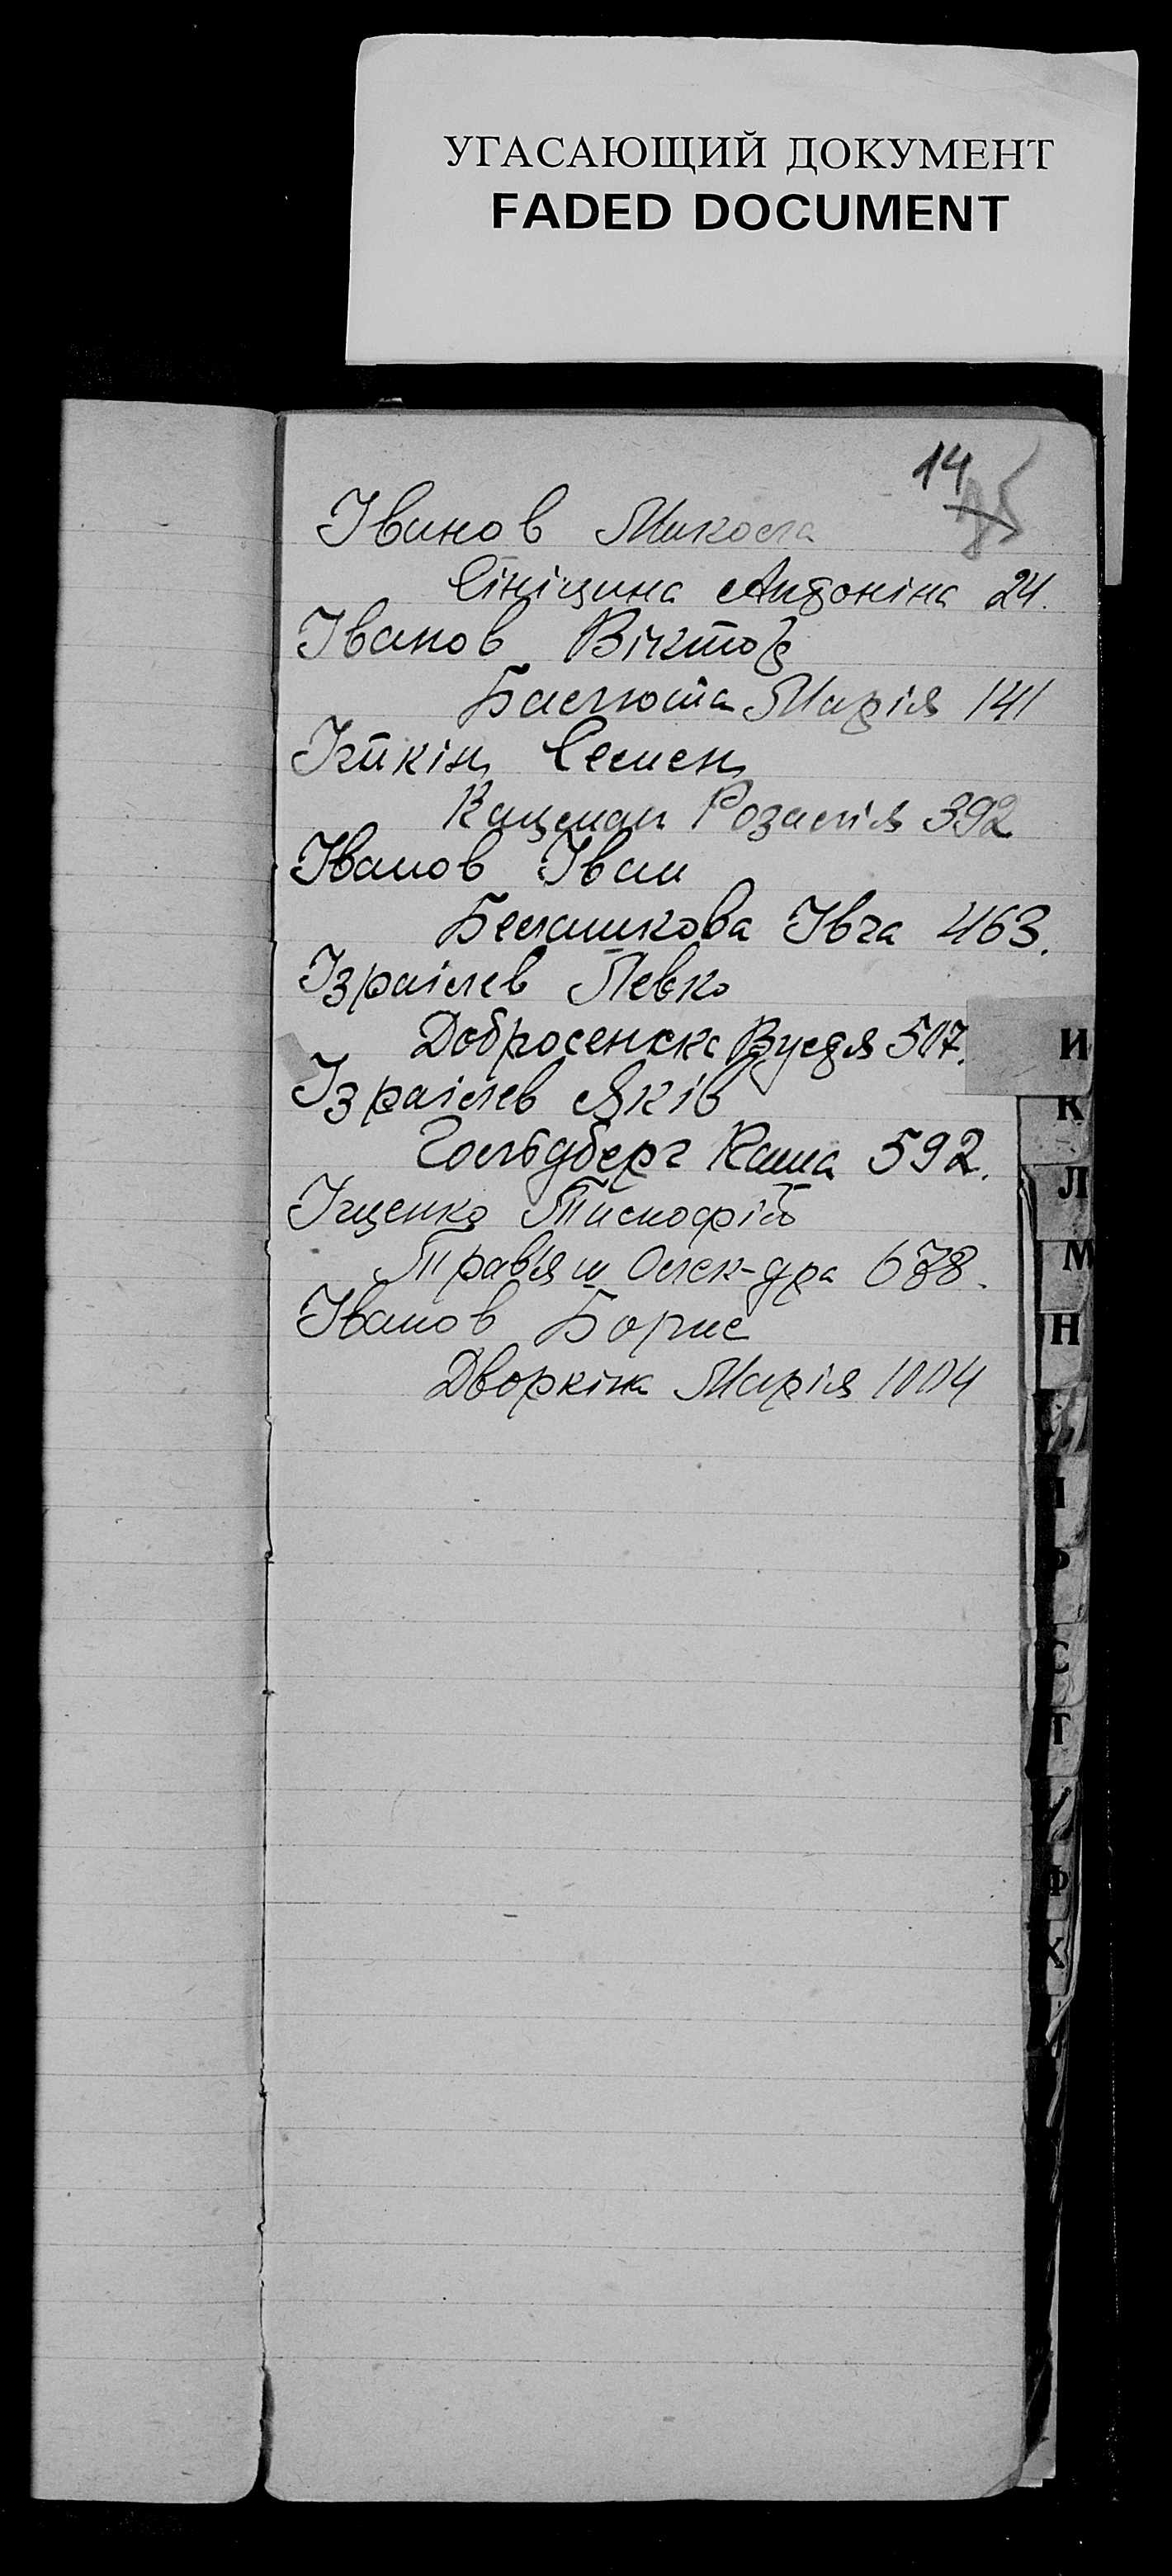 УГАСАЮЩИЙ ДОКУМЕНТ
FADED DOCUMENT
14
Іванов Микола
Сініцина Антоніна 24.
Іванов Віктор
Балюта Марія 141
Іткін Семен
Кацман Розалія 392
Іванов Іван
Белашкова Івга 463.
Ізраілев Левко
Добросенска 507.
Ізраілев Яків
Гольдберг Каша 592.
Іщенко Тимофій
Трав'я Олек-дра 678.
Іванов Борис
Дворкіна Марія 1004
И
К
Л
М
Н
П
Р
С
Т
Ф
Х